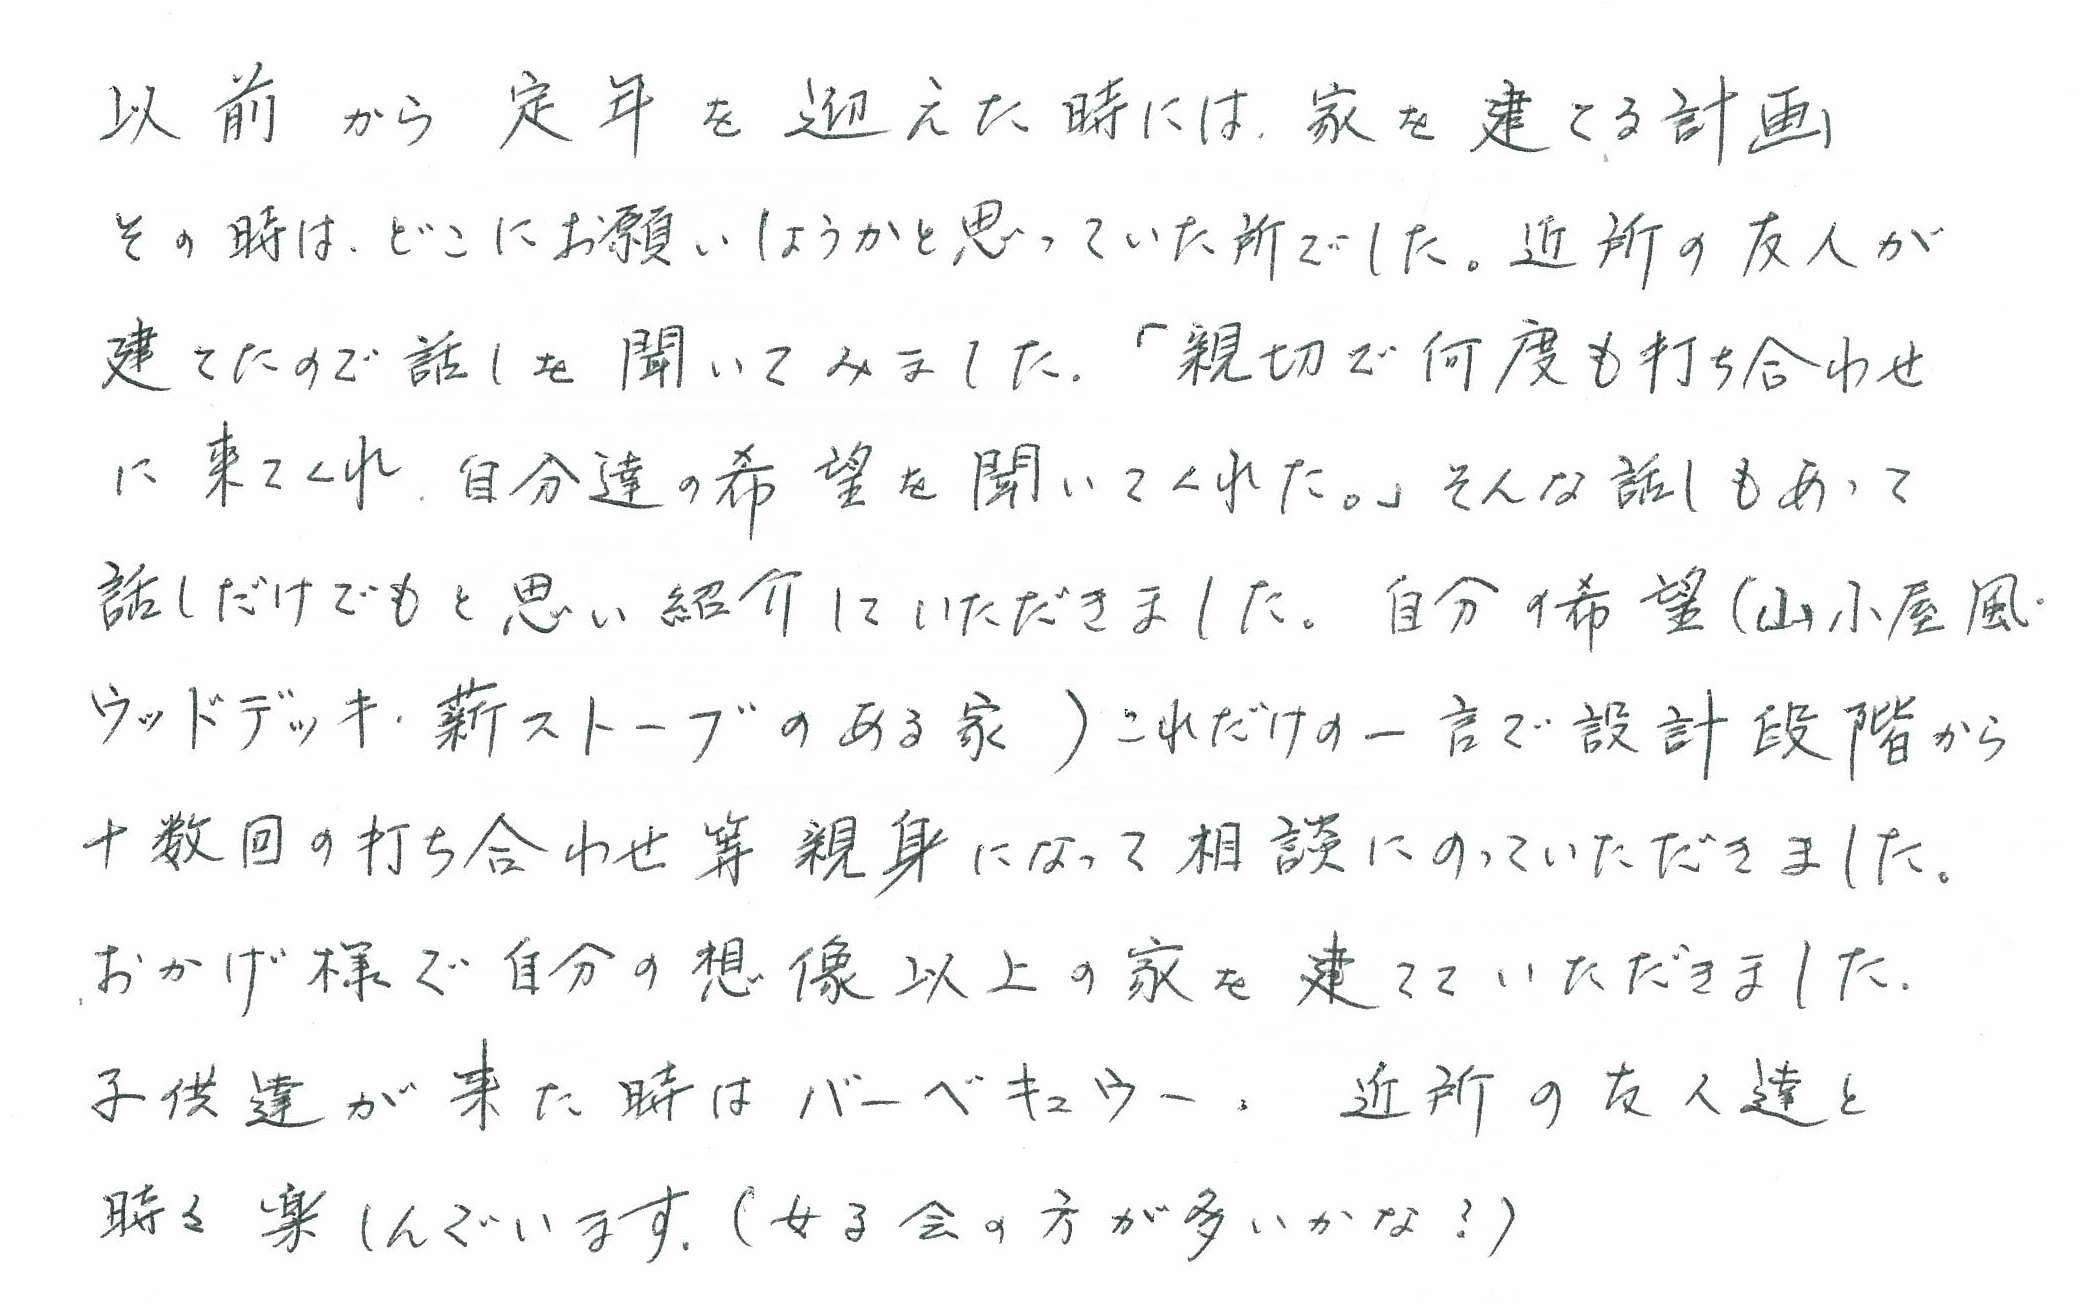 以前から定年を迎えた時には、家を建てる計画
その時は、どこにお願いしようかと思っていた所でした。近所の友人が
建てたので話しを聞いてみました。「親切で何度も打ち合わせ
に来てくれ、自分達の希望を聞いてくれた。」そんな話しもあって
話しだけでもと思い紹介していただきました。自分の希望(山小屋風・
ウッドデッキ・薪ストーブのある家)これだけの一言で設計段階から
十数回の打ち合わせ等親身になって相談にのっていただきました。
おかげ様で自分の想像以上の家を建てていただきました。
子供達が来た時はバーベキュウー、近所の友人達と
時々楽しんでいます。(女子会の方が多いかな?)